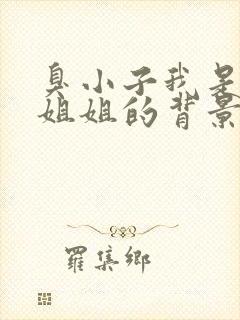 臭小子我是
姐姐的背景
羅集鄉